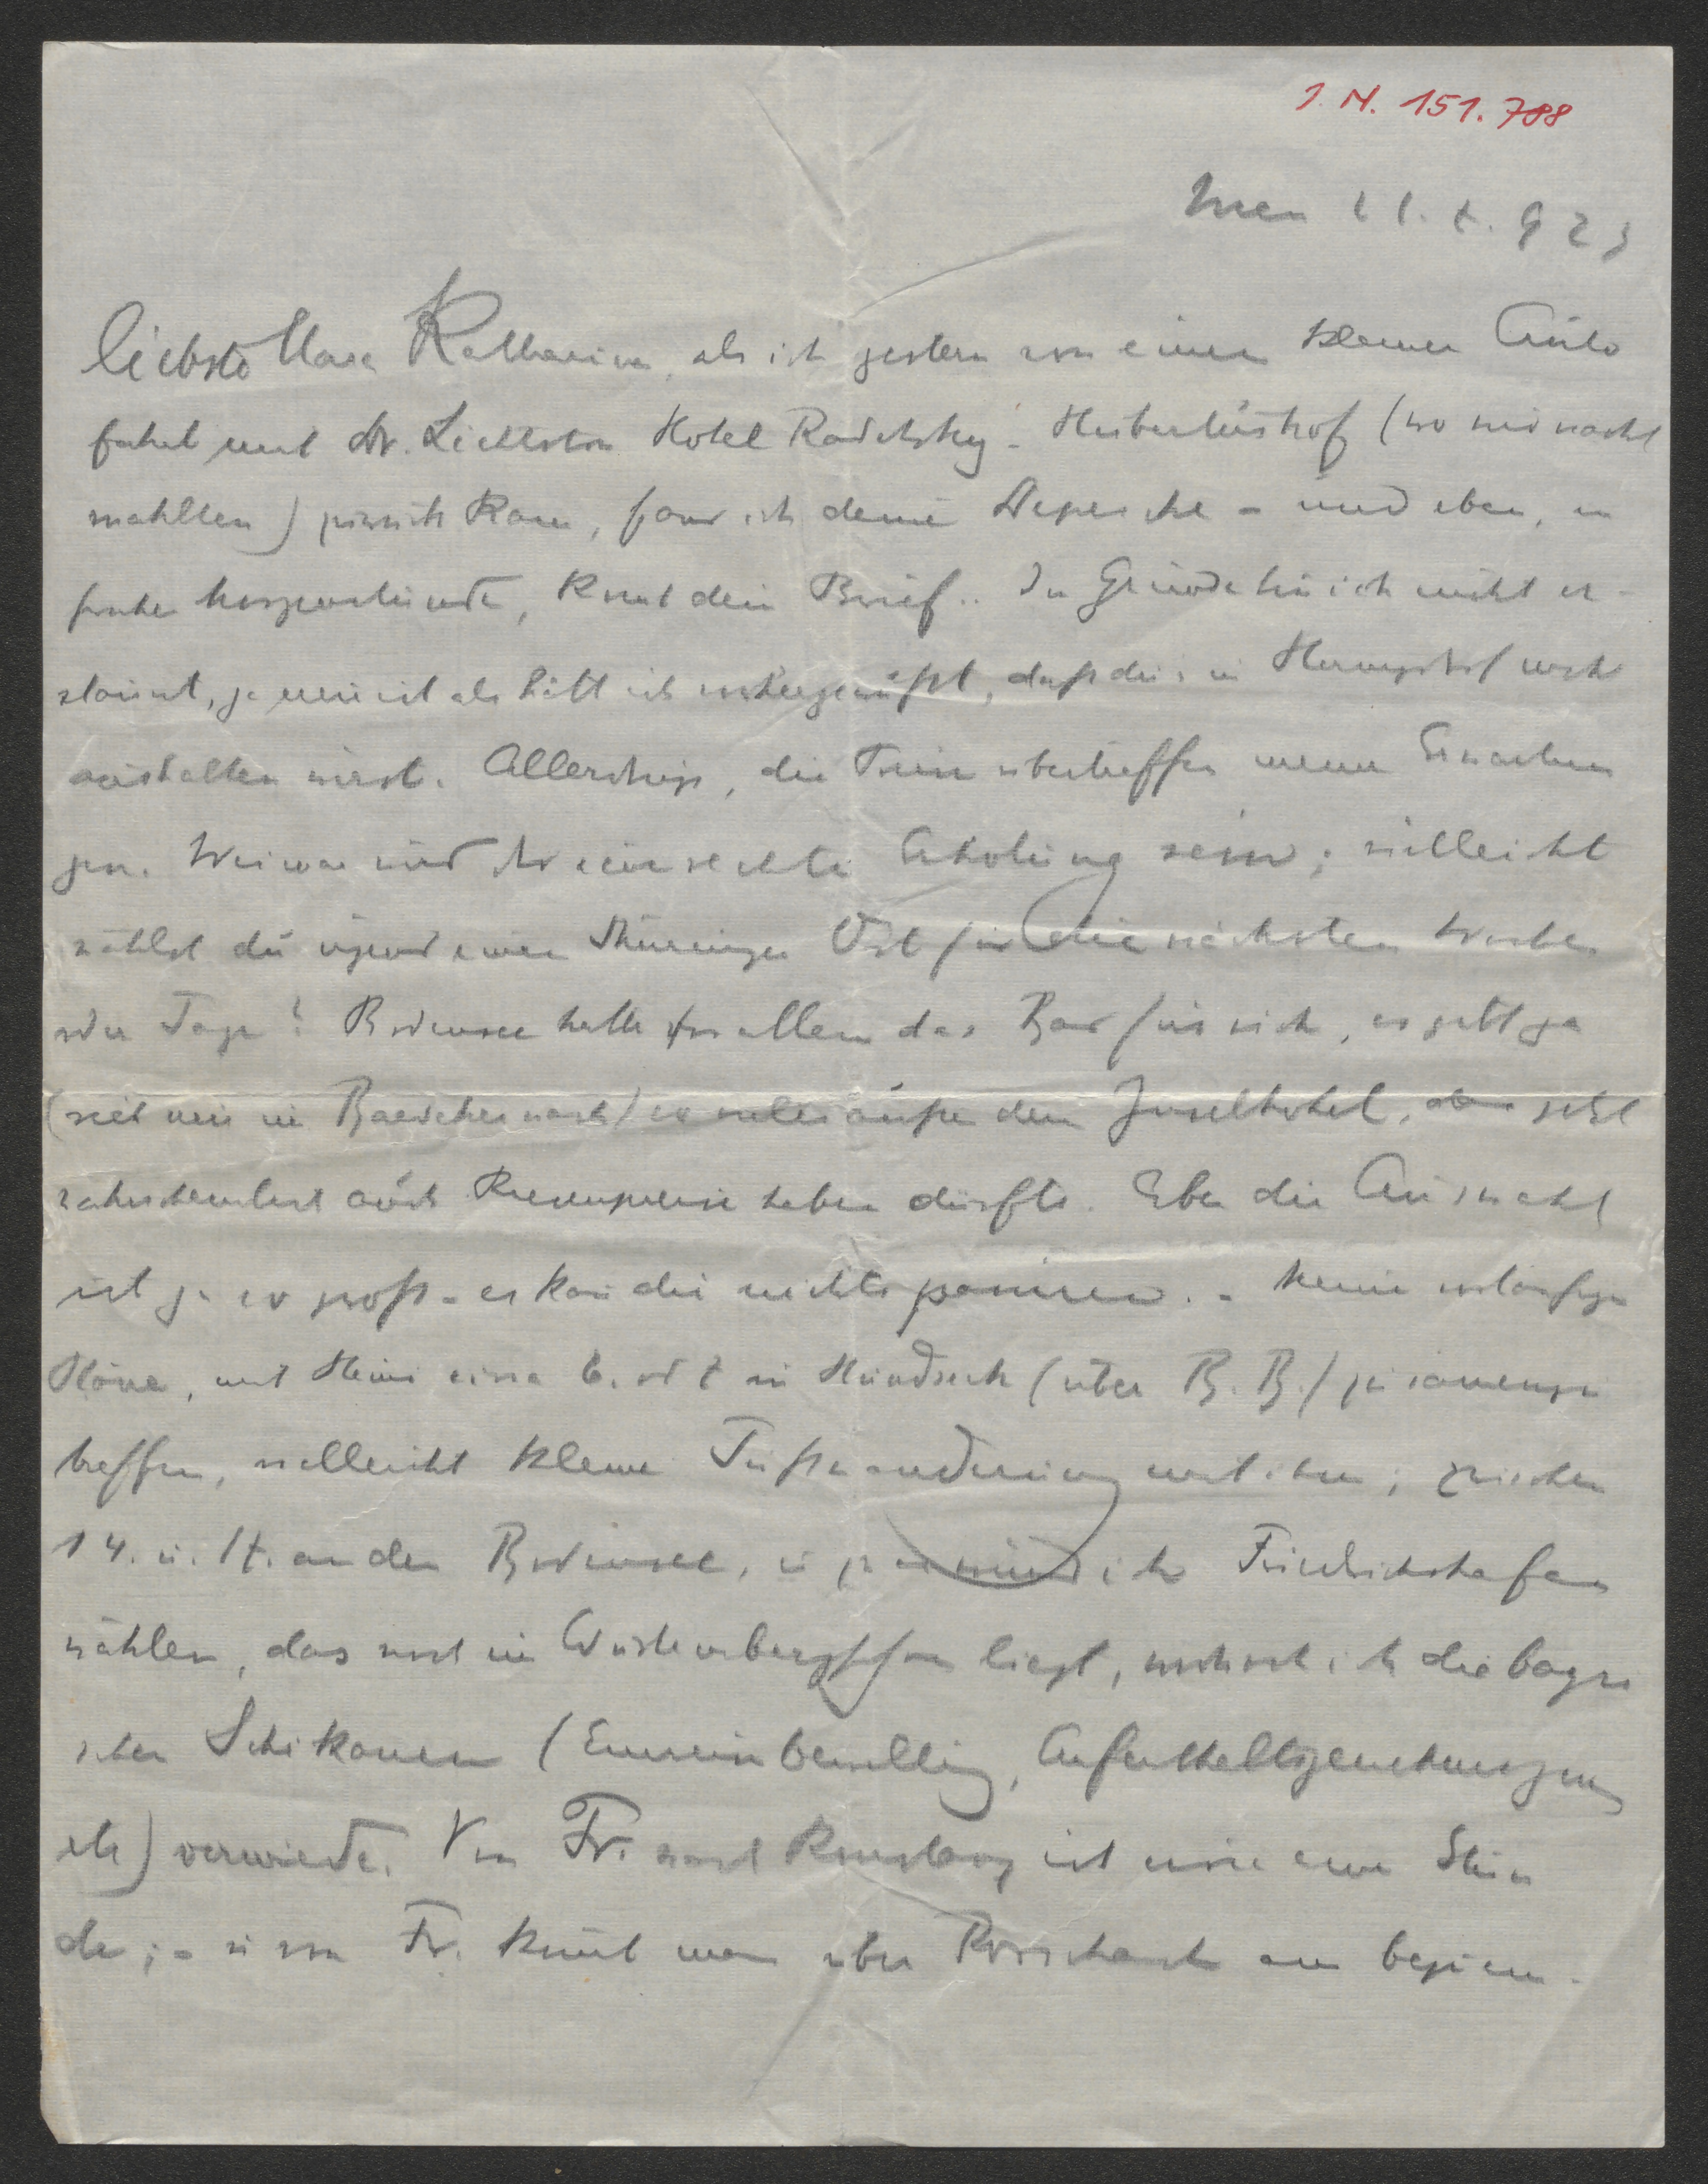 I. N. 151.788
Wien 21.7.923
liebste Clara Katharina, als ich gestern von einer kleinen Auto
fahrt mit Dr. Hotel Radetzky - Hubertushof (wo wir nacht
mahlten) zurück kam, fand ich deine Depesche - und eben, in
früher Morgenstunde, kommt dein Brief.. Im Grunde bin ich nicht er-
staunt, ja mir ist als hätt ich vorhergewußt, daß du's in nicht
aushalten wirst. Allerdings, die Preise übertreffen meine Erwartun
gen. Weimar wird dir eine rechte Erholung sein; vielleicht
wählst du irgend einen Thüringer Ort für die nächsten Wochen
oder Tage? Bodensee hätte vor allem das Bad für sich, es gibt ja
(seh nur im Baedeker nach) so vieles außer dem Inselhotel, das jetzt
wahrscheinlich auch Riesenpreise haben dürfte. Eben die Auswahl
ist ja so groß - es kann dir nichts passiren. - Meine vorläufigen
Pläne, mit Heini circa 6. od 7 in Hundseck (über B. B.) zusammenzu
treffen, vielleicht kleine Fußwanderung mit ihm; zwischen
14. u. 17. an den Bodensee, u zwar würd ich Friedrichshafen
wählen, das noch im Württembergischen liegt, wodurch ich die bayri
schen Schikanen (Einreisebewilligung, Aufenthaltsgenehmigung
etc) vermiede. Von Fr. nach Konstanz ist nur eine Stun
de; - u von Fr. kommt man über Rorschach am bequem-